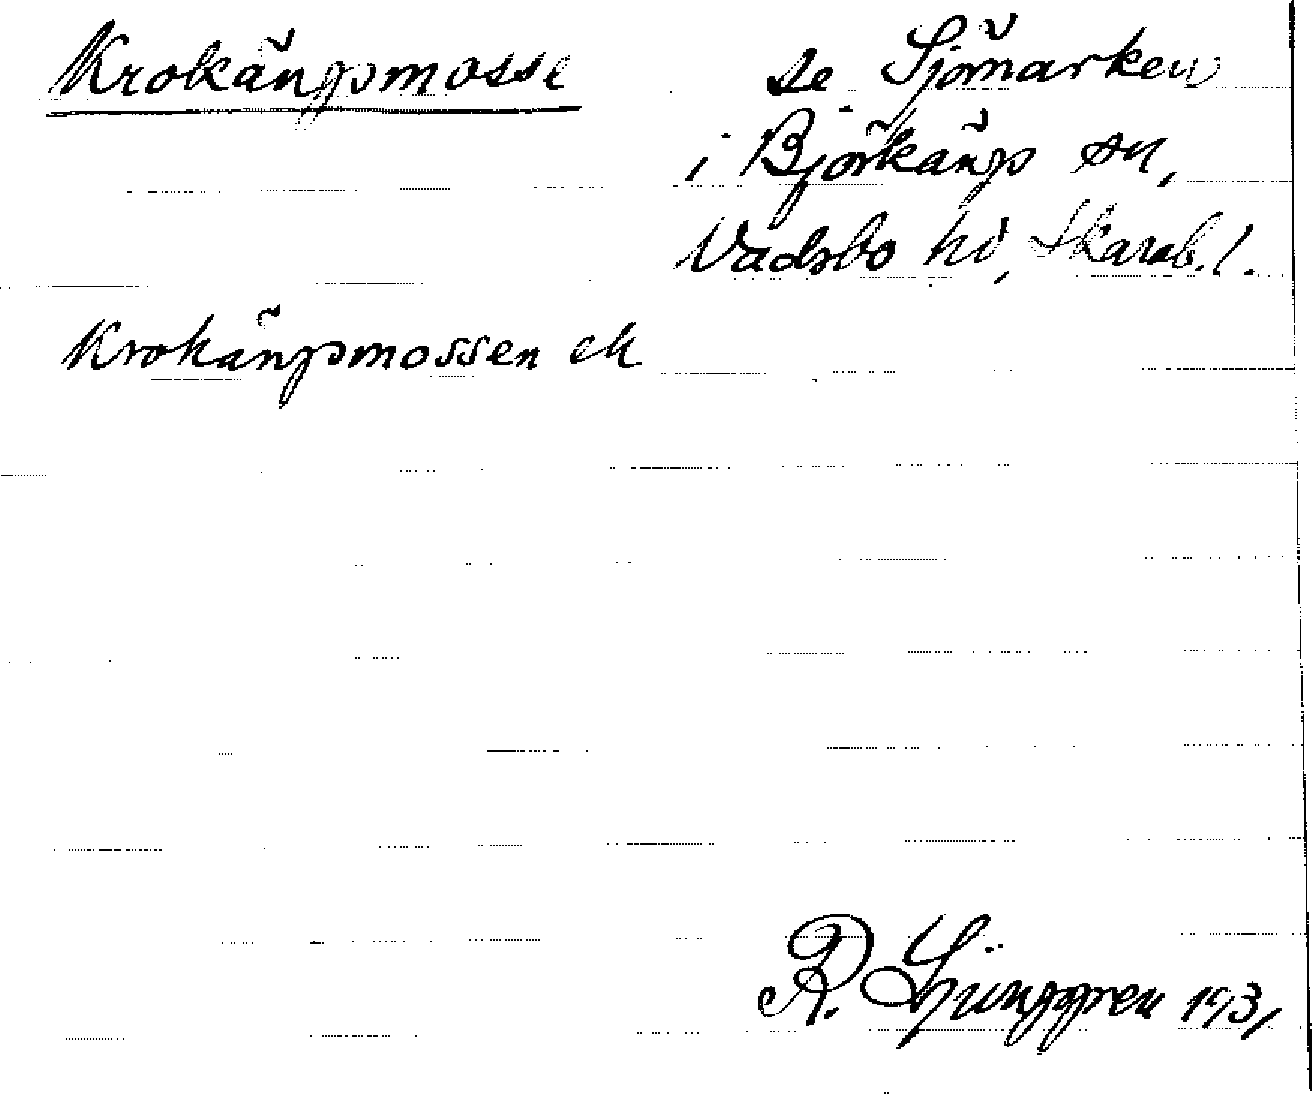 Krokängsmosse
se Sjömarken
i Björkängs sn,
Vadsbo hd, Skarab. l.
Krokängsmossen ek
R. Ljunggren 1931